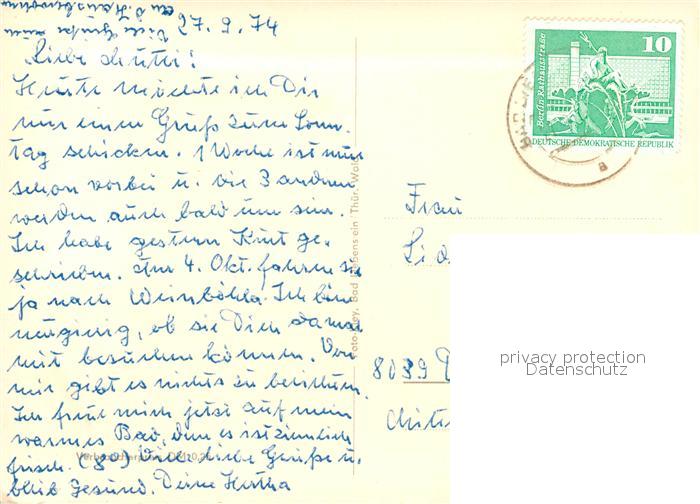 27.9.74
Liebe Mutti!
Heute möchte ich Dir
nur einen Gruß zum Sonn-
tag schicken. 1 Woche ist nun
schon vorbei u. die 3 andern
werden auch bald um sein.
Ich habe gestern Kurt ge-
schrieben. Am 4. Okt. fahren sie
ja nach Weinböhla. Ich bin
neugierig, ob sie Dich damal
mit besuchen können. Von
mir gibt es nichts zu berichten.
Ich freue mich jetzt auf mein
warmes Bad, denn es ist ziemlich
frisch. (8°) Viele liebe Grüße u.
bleib gesund. Deine Hertha
Viele Grüße
an d. Hausbewohner
Bad Liebenstein Thür. Wald
10
Berlin, Rathausstraße
DEUTSCHE DEMOKRATISCHE REPUBLIK
a
Frau
8039
privacy protection
Datenschutz